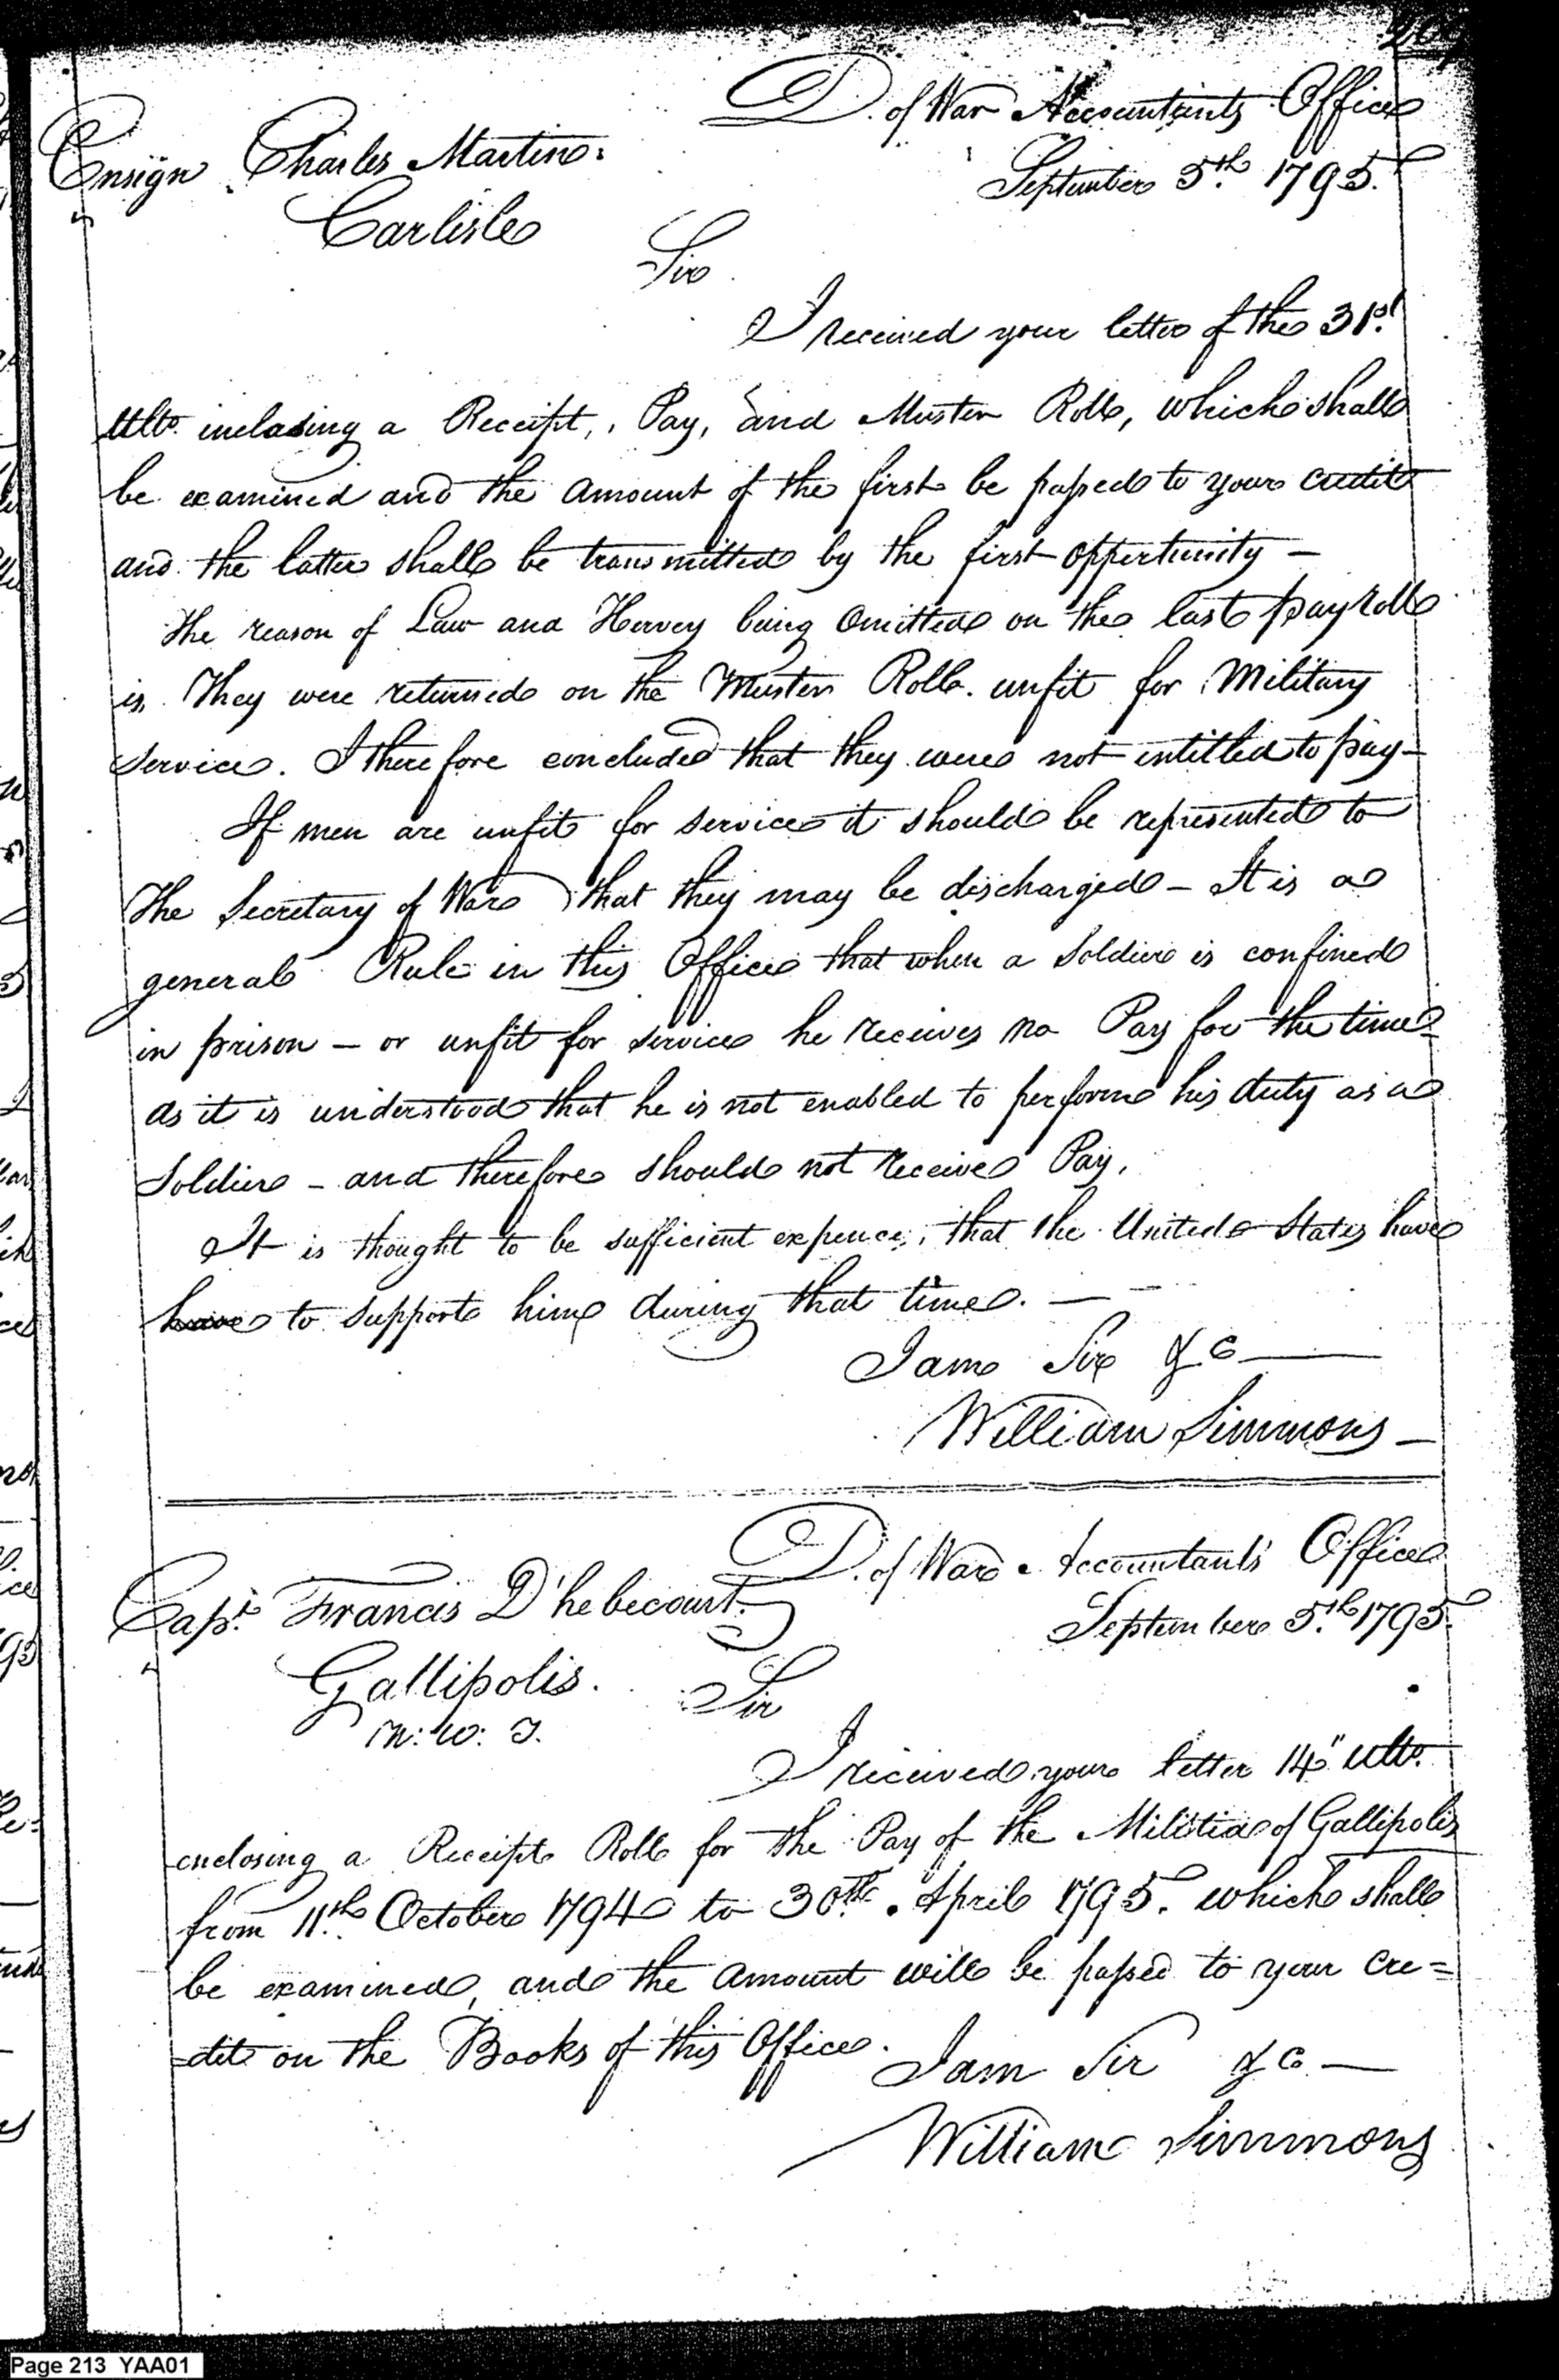 209
D. of War Accountants Office
September 5th. 1795.
Ensign Charles Martin.
Carlisle
Sir
I received your letter of the 31st.
Ulto. inclosing a Receipt, Pay, and Muster Roll, which shall
be examined and the amount of the first be passed to your credit
and the latter shall be transmitted by the first oppertunity —
The reason of Law and Hervey being Omitted on the last pay roll
is They were returned on the Muster Roll. unfit for Military
Service. I therefore concluded that they were not intitled to pay —
If men are unfit for service it should be represented to
The Secretary of War that they may be discharged — It is a
general Rule in this Office that when a Soldier is confined
in prison — or unfit for service he receives no Pay for the time
as it is understood that he is not enabled to perform his duty as a
Soldier — and therefore should not receive Pay.
It is thought to be sufficient expence, that the United States have
have to support him during that time. —
I am Sir &c —
William Simmons —
D. of War Accountants' Office
September 5th. 1795.
Capt. Francis D'hebecourt.
Gallipolis.
N. W. T.
Sir
I received your letter 14" Ulto.
enclosing a Receipt Roll for the Pay of the Militia of Gallipolis
from 11th. October 1794 to 30th. April 1795. which shall
be examined, and the amount will be passed to your cre=
=dit on the Books of this Office.
I am Sir &c —
William Simmons
Page 213 YAA01